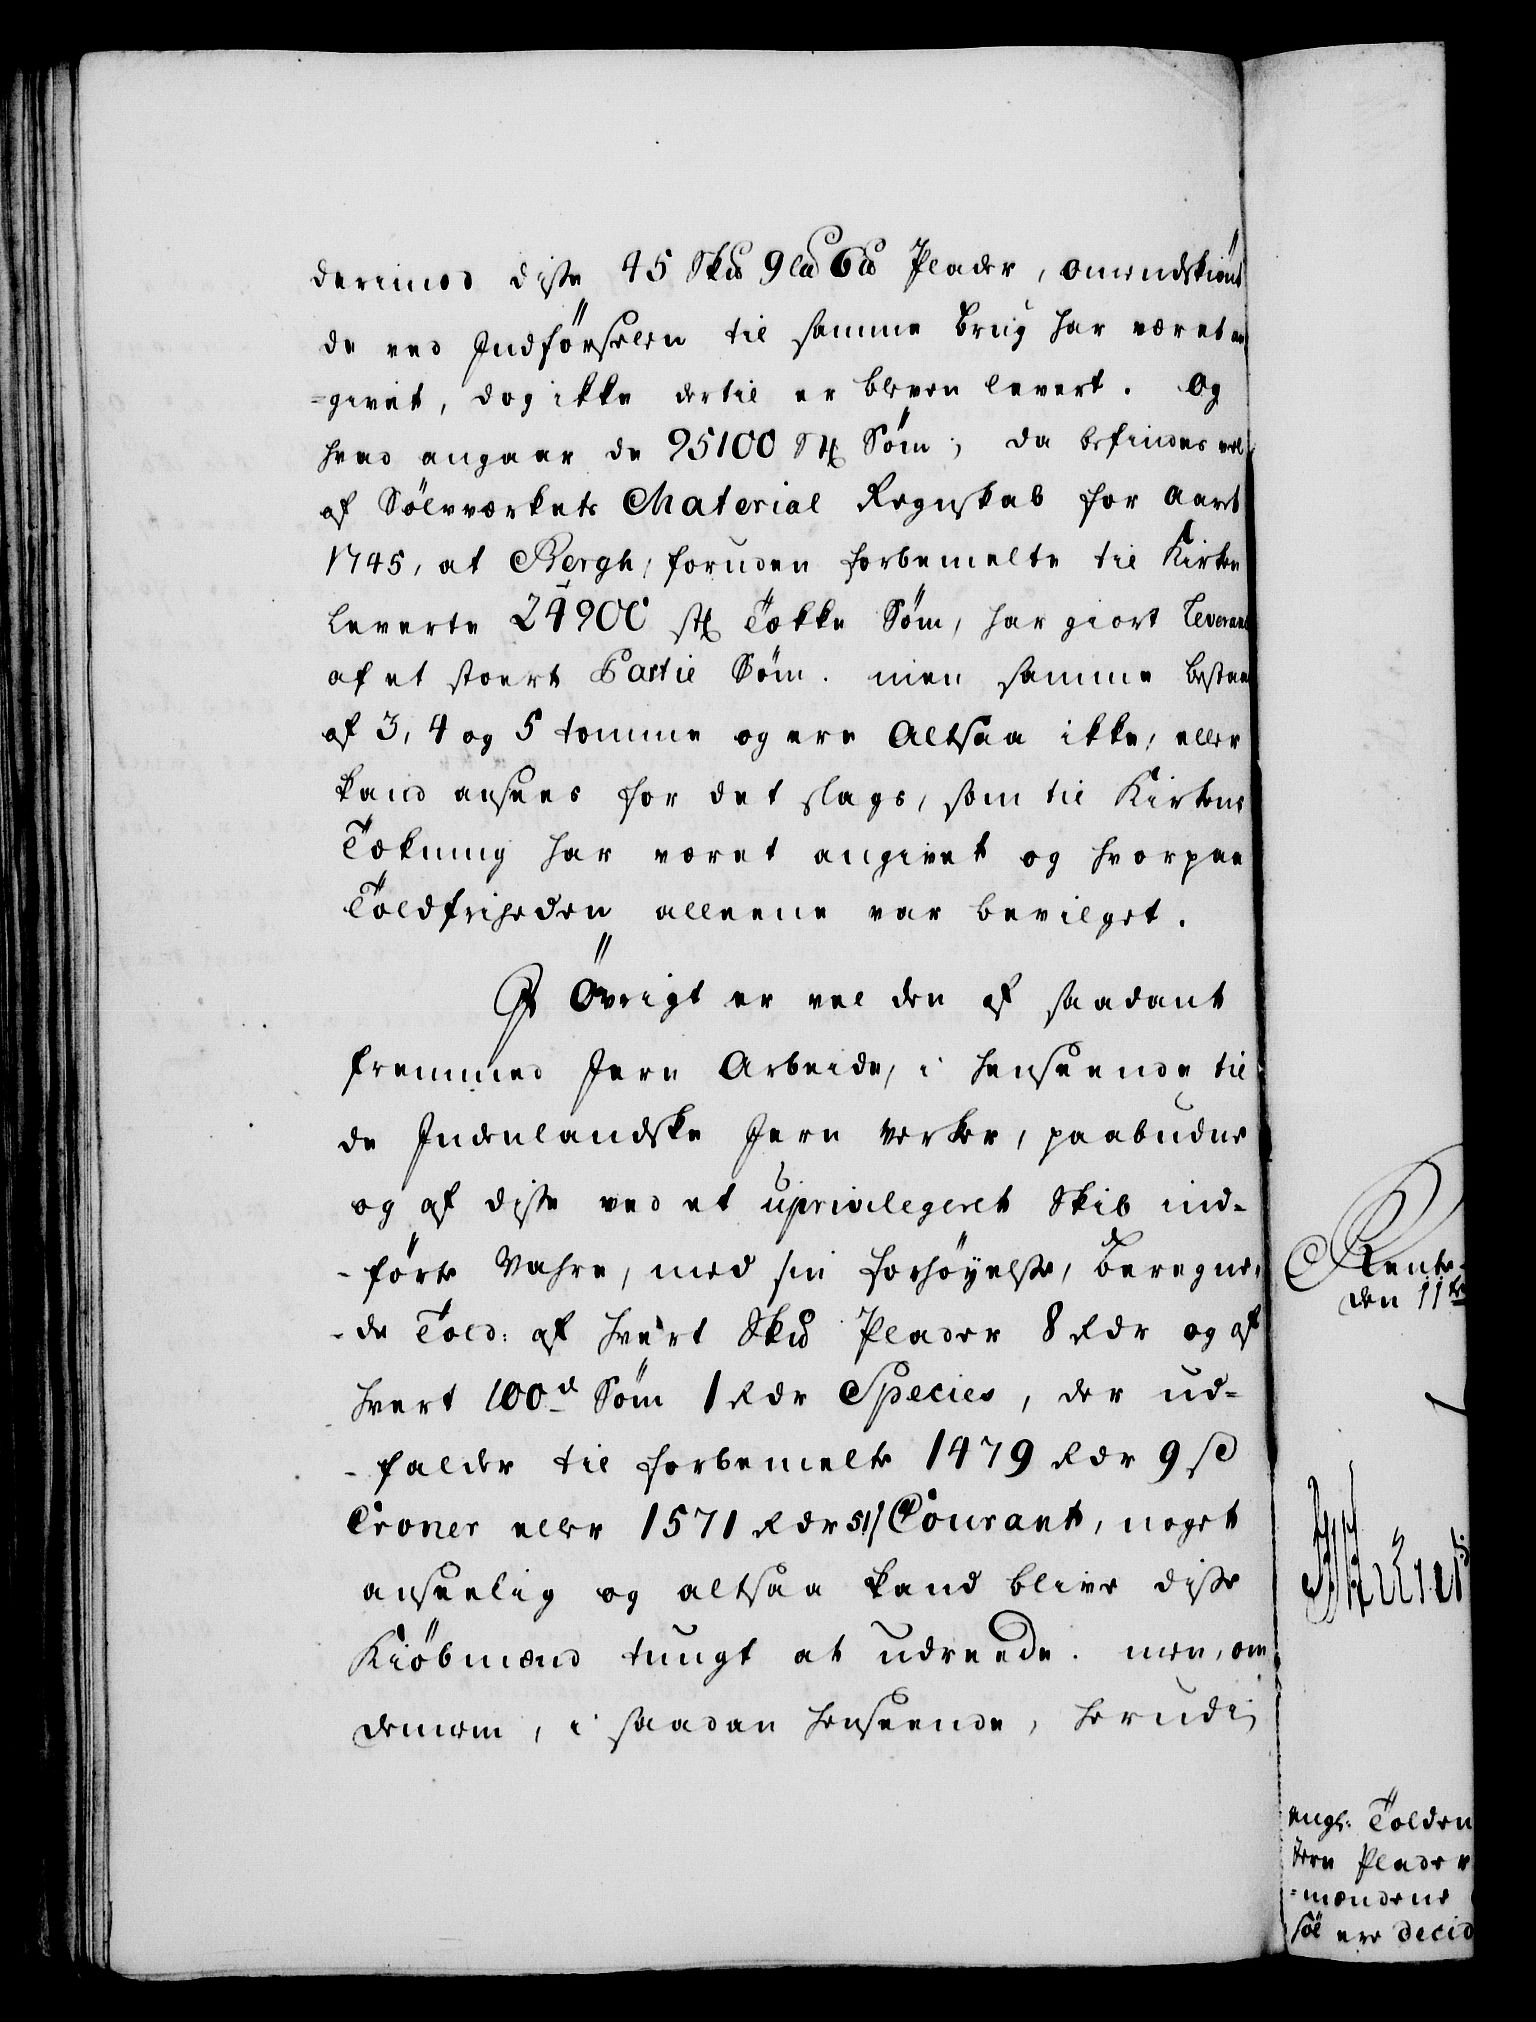 derimod disse 45 Sk℔ 9 L℔ 6 ℔ Plader, omendskiönt
de ved Indförselen til samme brug har været an
=givet, dog ikke dertil er bleven levert. Og
hvad angaar de 95100 St Söm, da befindes vel
af Sölvværkets Material Regnskab for Aaret
1745, at Bergh, foruden forbemelte til Kirken
leverte 24900 st Tække Söm, har giort Leverance
af et stoert Partie Söm. men samme bestaar
af 3, 4 og 5 tomme og ere Altsaa ikke, eller
kand ansees for det slags, som til Kirkens
Tækning har været angivet og hvorpaa
Toldfriheden alleene var bevilget.
I Övrigt er vel den af saadant
fremmed Jern Arbeide, i henseende til
de Indenlandske Jern Verker, paabudne
og af disse ved et uprivilegeret Skib ind-
-förte Vahre, med sin forhöyelse, beregne-
-de Told: af hvert Sk℔ Plader 8 Rdr og af
hvert 100d Söm 1 Rdr Species, der ud-
-falder til forbemelte 1479 Rdr 9 ß
Croner eller 1571 Rdr 51/ Courant, noget
anseelig og altsaa kand blive disse
Kiöbmænd tungt at udreede. men, om
demem, i saadan henseende, herudi
Rente-
den 11te
angl: Tolden
Jern Plader
=mændene
söl ere decid